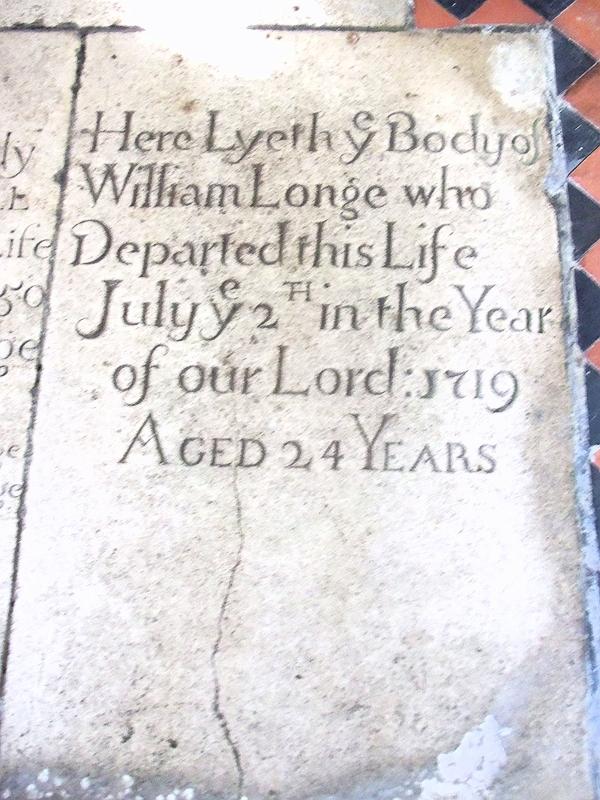 Here Lyeth yᵉ Body of
William Longe who
Departed this Life
July yᵉ 2ᵀᴴ in the Year
of our Lord: 1719
AGED 24 YEARS
ife
50